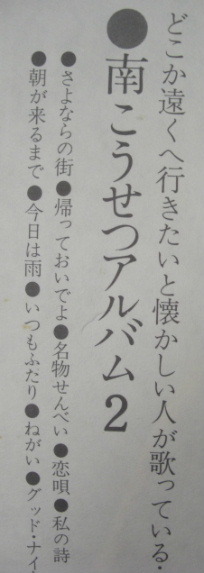 どこか遠くへ行きたいと懐かしい人が歌っている・
●南こうせつアルバム2
●さよならの街●帰っておいでよ●名物せんべい●恋唄●私の詩
●朝が来るまで●今日は雨●いつもふたり●ねがい●グッド・ナイ